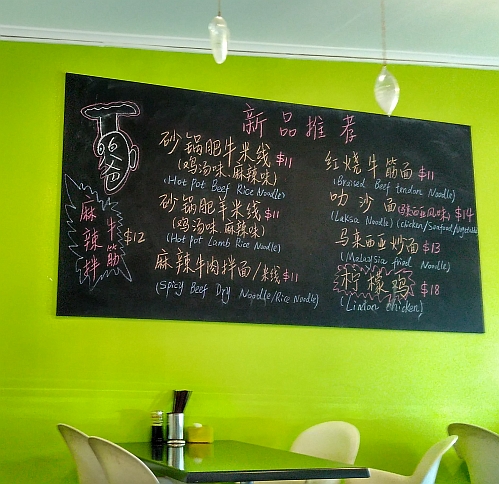 新品推荐
爸爸
麻辣拌
牛筋
$12
砂锅肥牛米线 $11
(鸡汤味 麻辣味)
(Hot Pot Beef Rice Noodle)
砂锅肥羊米线 $11
(鸡汤味 麻辣味)
(Hot pot Lamb Rice Noodle)
麻辣牛肉拌面/米线 $11
(Spicy Beef Dry Noodle/Rice Noodle)
红烧牛筋面 $11
(Braised Beef tendon Noodle)
叻沙面(马来西亚风味) $14
(Laksa Noodle) (chicken/Seafood/Vegetable)
马来西亚炒面 $13
(Malaysia fried Noodle)
柠檬鸡 $18
(Limon chicken)